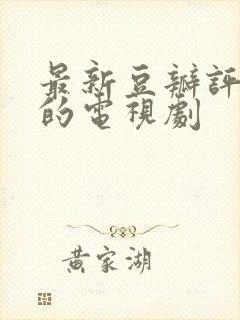 最新豆瓣評
的電視劇
黄家湖